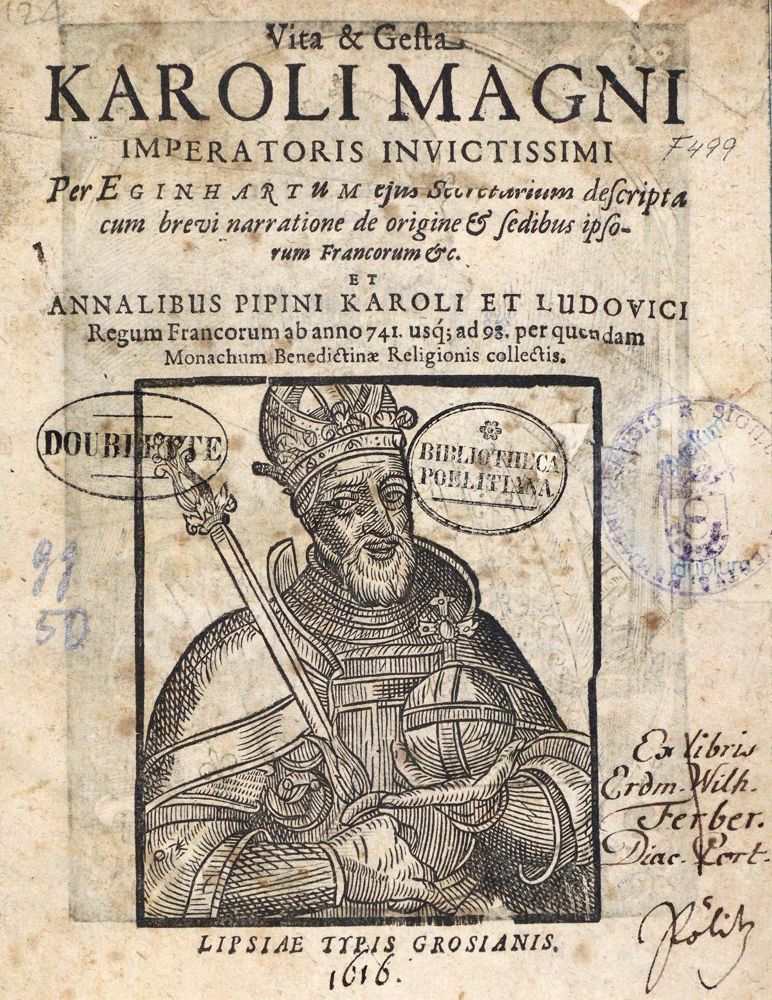 124
Vita & Gesta
KAROLI MAGNI
IMPERATORIS INVICTISSIMI
F499
Per EGINHARTUM ejus Secretarium descripta
cum brevi narratione de origine & sedibus ipso-
rum Francorum &c.
ET
ANNALIBUS PIPINI KAROLI ET LUDOVICI
Regum Francorum ab anno 741. usq; ad 98. per quendam
Monachum Benedictinæ Religionis collectis.
DOUBLETTE
BIBLIOTHECA
POELITIANA
99
50
Ex libris
Erdm. Wilh.
Ferber.
Diac.
Pölitz
LIPSIAE TYPIS GROSIANIS.
1616.